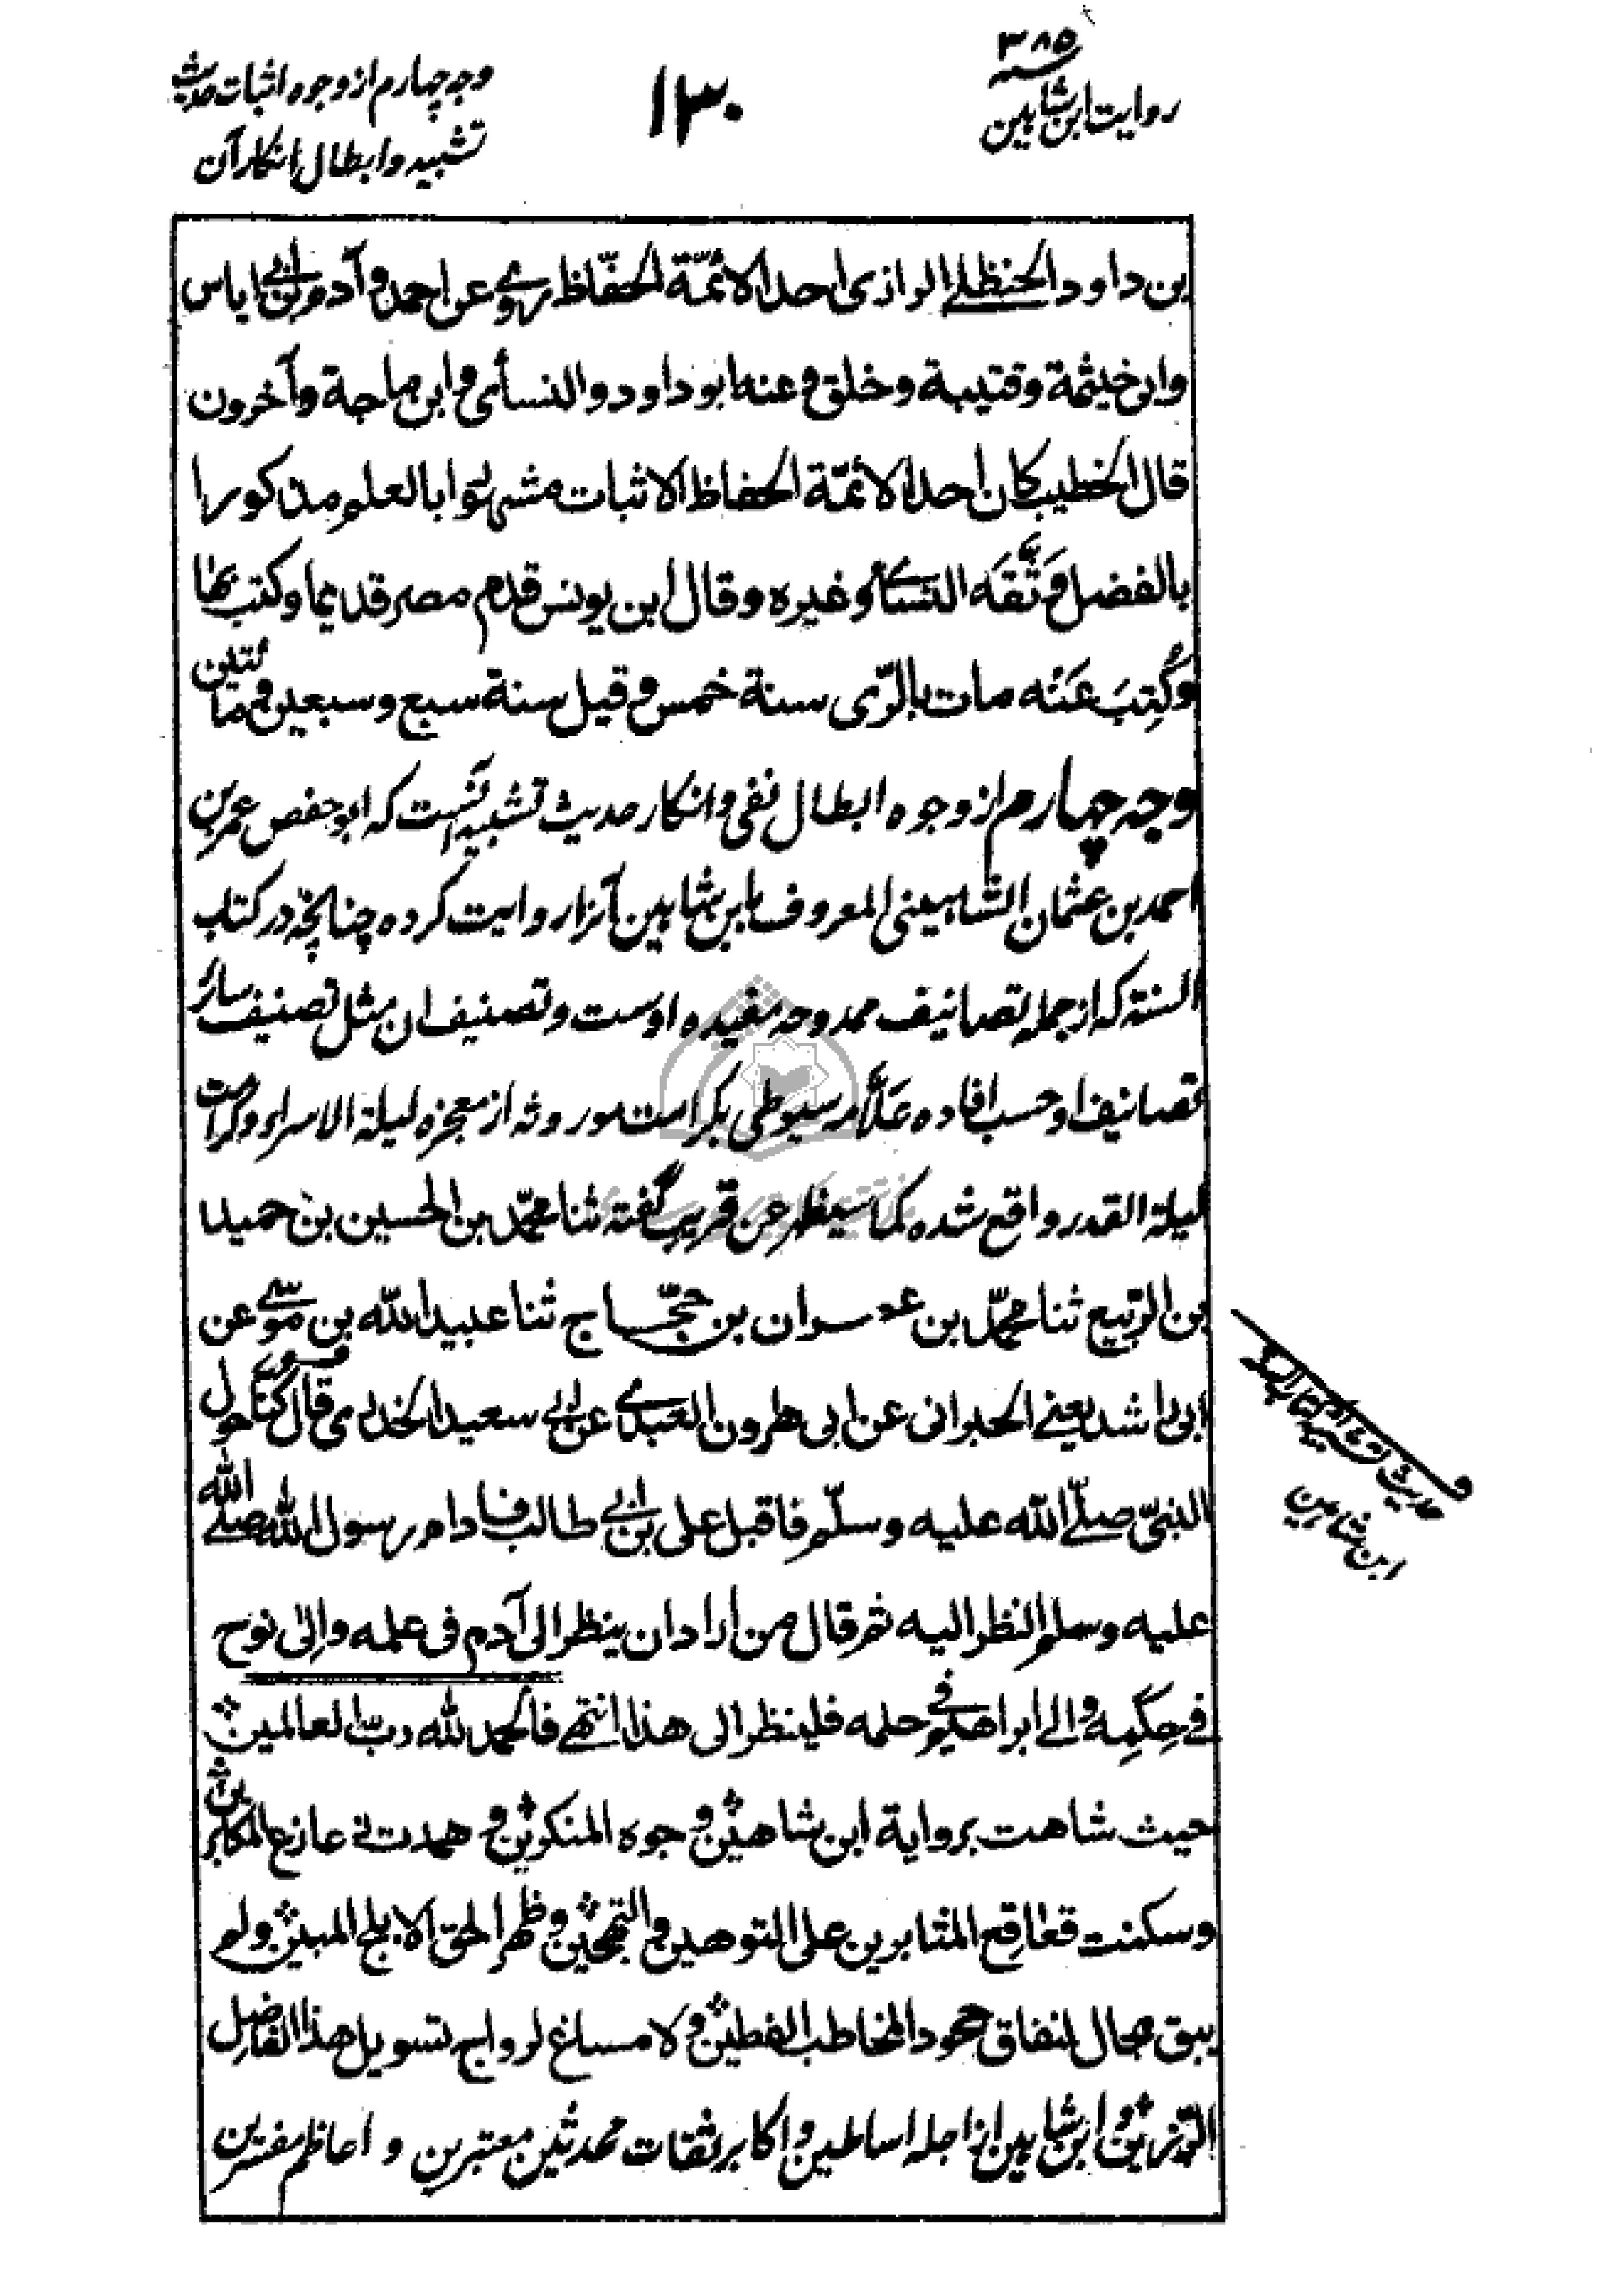 ۳۸۵
روایت ابن شاہین
۱۳۰
وجہ چہارم از وجوہ اثبات حدیث
تشبیہ و ابطال انکار آن
بن داود الحنظلی الرازی احد الائمّة الحفّاظ روی عن احمد و آدم بن ابی ایاس
وابی خیثمة وقتیبة وخلق و عنه ابو داود والنسائی وابن ماجة وآخرون
قال الخطیب کان احد الائمّة الحفاظ الاثبات مشهورا بالعلم مذکورا
بالفضل وَثَّقَه النسائی وغیره وقال ابن یونس قدم مصر قدیما وکتب بها
وکُتِبَ عَنْه مات بالرّی سنة خمس وقیل سنة سبع وسبعین ومائتین
وجہ چہارم از وجوہ ابطال نفی و انکار حدیث تشبیہ آنست کہ ابو حفص عمر بن
احمد بن عثمان الشاہینی المعروف بابن شاہین آنرا روایت کردہ چنانچہ در کتاب
السنۃ کہ از جملہ تصانیف ممدوحہ مفیدہ اوست و تصنیف ان مثل تصنیف سائر
تصانیف او حسب افادہ علّامہ سیوطی بکراست موروثہ از معجزہ لیلۃ الاسراء و کرامت
لیلۃ القدر واقع شدہ کما سیظهر عن قریب گفتہ ثنا محمّد بن الحسین بن حمید
بن الربیع ثنا محمّد بن عمران بن حجّاج ثنا عبید الله بن موسی عن
ابی راشد یعنی الحبرانی عن ابی هارون العبدی عن ابی سعید الخدری قال کنّا حول
النبیّ صلّی الله علیه وسلّم فاقبل علی بن ابی طالب فادام رسول الله صلی الله
علیه وسلم النظر الیه ثم قال من اراد ان ینظر الی آدم فی علمه والی نوح
فی حِکَمِه والی ابراهیم فی حلمه فلینظر الی هذا انتهی فالحمد لله ربّ العالمین
حیث شاهت بروایة ابن شاهین وجوه المنکرین و همدت زعازع المکابرین
وسکنت قعاقع المثابرین علی التوهین والتهجین وظهر الحق الابلج المبین ولم
یبق مجال لنفاق جحود المخاطب الفطین ولا مساغ لرواج تسویل هذا الفاضل
الرّزین و ابن شاہین از اجلہ اساطین و اکابر ثقات محدثین معتبرین و اعاظم مفسرین
ابن شاہین